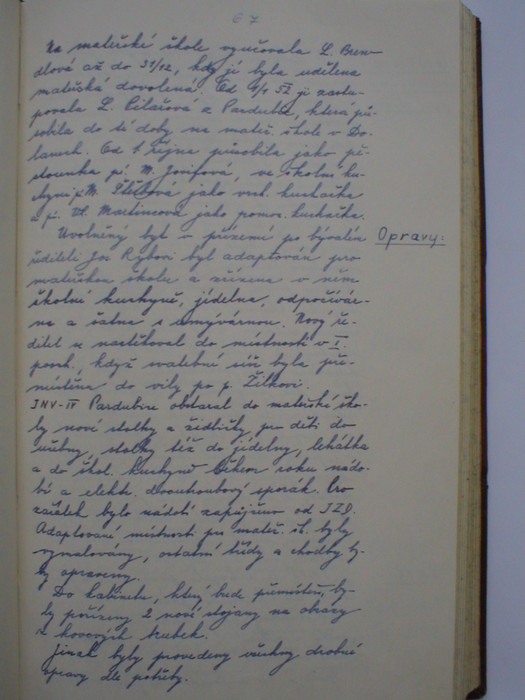 67
Na mateřské škole vyučovala L. Bren-
dlová až do 31/12, kdy jí byla udělena
mateřská dovolená. Od 4/1 52 ji zastu-
povala L. Cilašová z Pardubic, která pů-
sobila do té doby na mateř. škole v Do-
lanech. Od 1. října působila jako pě-
stounka pí M. Josifová, ve školní ku-
chyni p. M. jako ved. kuchařka
a pí. Vl. Martincová jako pomoc. kuchařka.
Uvolněný byt v přízemí po bývalém
Opravy:
řediteli Jos. Rybovi byl adaptován pro
mateřskou školu a zřízena v něm
školní kuchyně, jídelna, odpočívár-
na a šatna s umývárnou. Nový ře-
ditel se nastěhoval do místností v I.
posch., když svatební síň byla pře-
místěna do vily po p. Žilkovi.
JNV-IV Pardubice obstaral do mateřské ško-
ly nové stolky a židličky pro děti do
učebny, stolky též do jídelny, lehátka
a do škol. kuchyně během roku nádo-
bí a elektr. dvoutroubový sporák. Pro
začátek bylo nádobí zapůjčeno od JZD.
Adaptované místnosti pro mateř. šk. byly
vymalovány, ostatní třídy a chodby by-
ly opraveny.
Do kabinetu, který bude přemístěn, by-
ly pořízeny 2 nové stojany na obrazy
z kovových trubek.
Jinak byly provedeny všechny drobné
opravy dle potřeby.